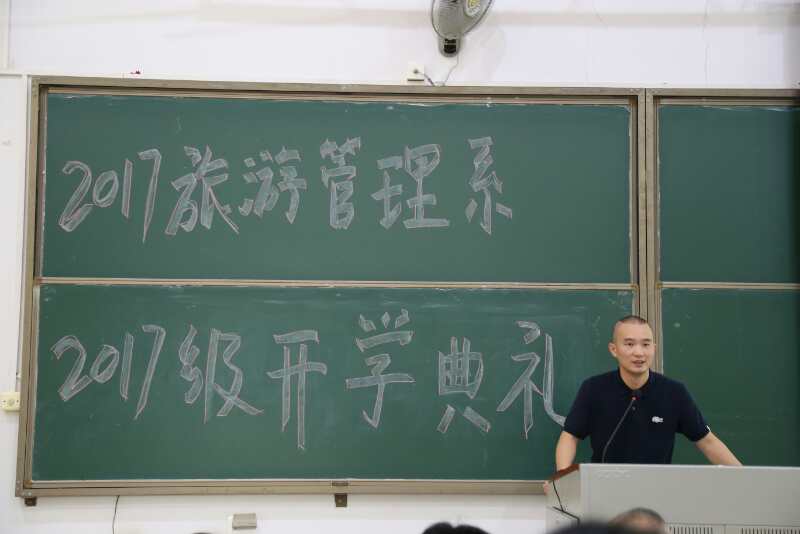 2017旅游管理系
2017级开学典礼